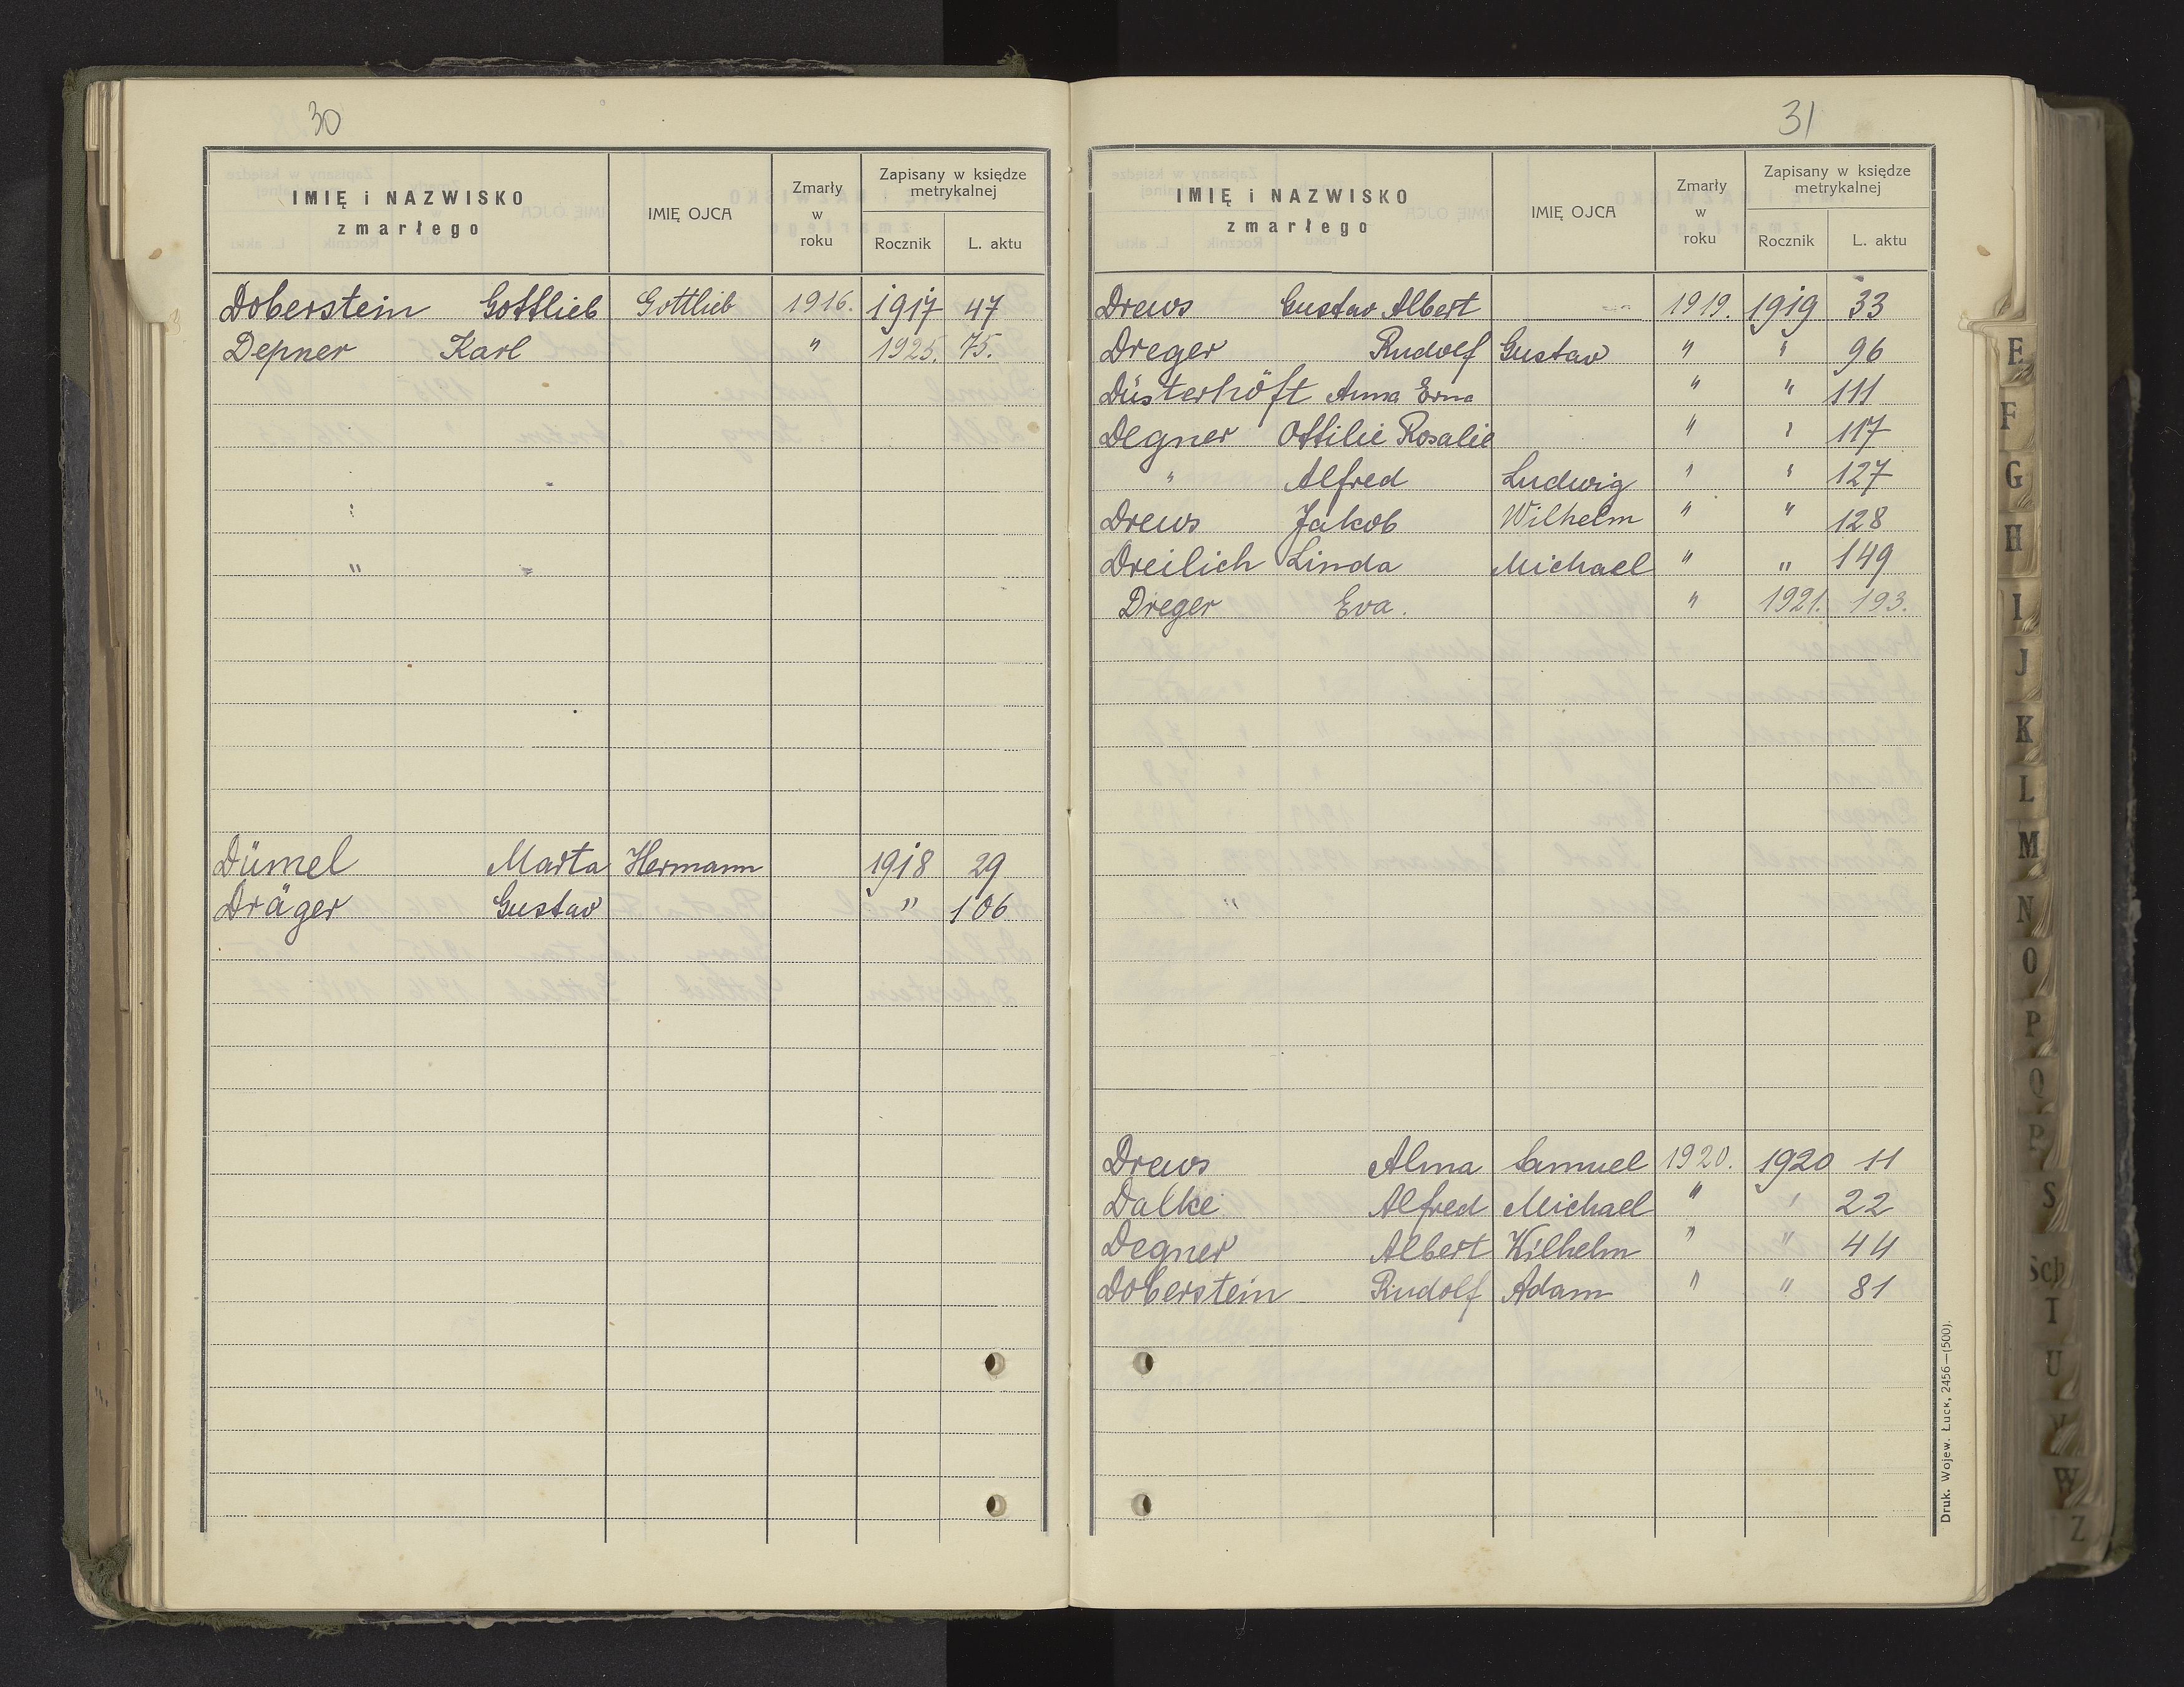 30
IMIĘ i NAZWISKO zmarłego IMIĘ OJCA Zmarły w roku Zapisany w księdze metrykalnej Rocznik L. aktu
Doberstein Gottlieb Gottlieb 1916. 1917 47
Depner Karl " 1925. 75.
"
Dümel Marta Hermann 1918 29
Dräger Gustav " 106
31
IMIĘ i NAZWISKO zmarłego IMIĘ OJCA Zmarły w roku Zapisany w księdze metrykalnej Rocznik L. aktu
Drews Gustav Albert 1919. 1919 33
Dreger Rudolf Gustav " " 96
Düsterhöft Anna Erna " " 111
Degner Ottilie Rosalie " " 117
" Alfred Ludwig " " 127
Drews Jakob Wilhelm " " 128
Dreilich Linda Michael " " 149
Dreger Eva. " 1921. 193.
Drews Alma Samuel 1920. 1920 11
Dalke Alfred Michael " " 22
Degner Albert Wilhelm " " 44
Doberstein Rudolf Adam " " 81
Druk. Wojew. Łuck, 2456—(500).
E
F
G
H
I
J
K
L
M
N
O
P
Q
R
S
Sch
T
U
V
W
Z